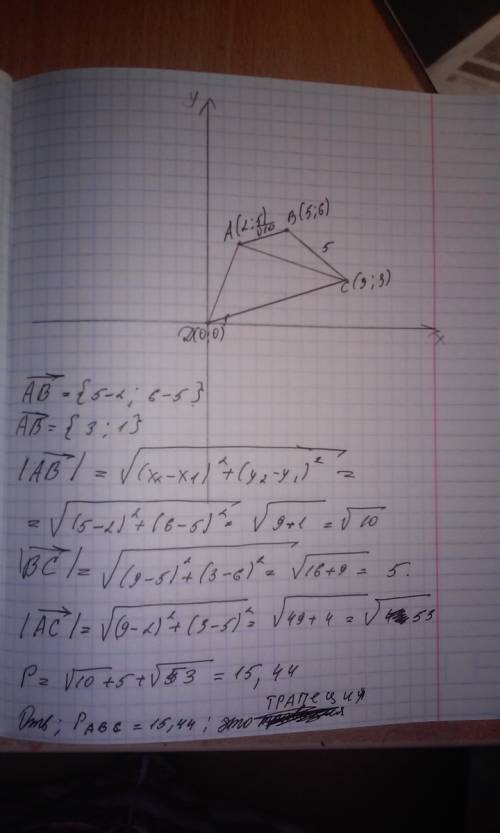 y
A(2;5)
√10
B(5;6)
5
C(9;3)
D(0;0)
x
AB = {5-2; 6-5}
AB = {3; 1}
|AB| = √(x₂-x₁)²+(y₂-y₁)² =
= √(5-2)²+(6-5)² = √9+1 = √10
|BC| = √(9-5)²+(3-6)² = √16+9 = 5.
|AC| = √(9-2)²+(3-5)² = √49+4 = √53
P = √10+5+√53 = 15,44
ТРАПЕЦИЯ
Отв; P ABC = 15,44; это